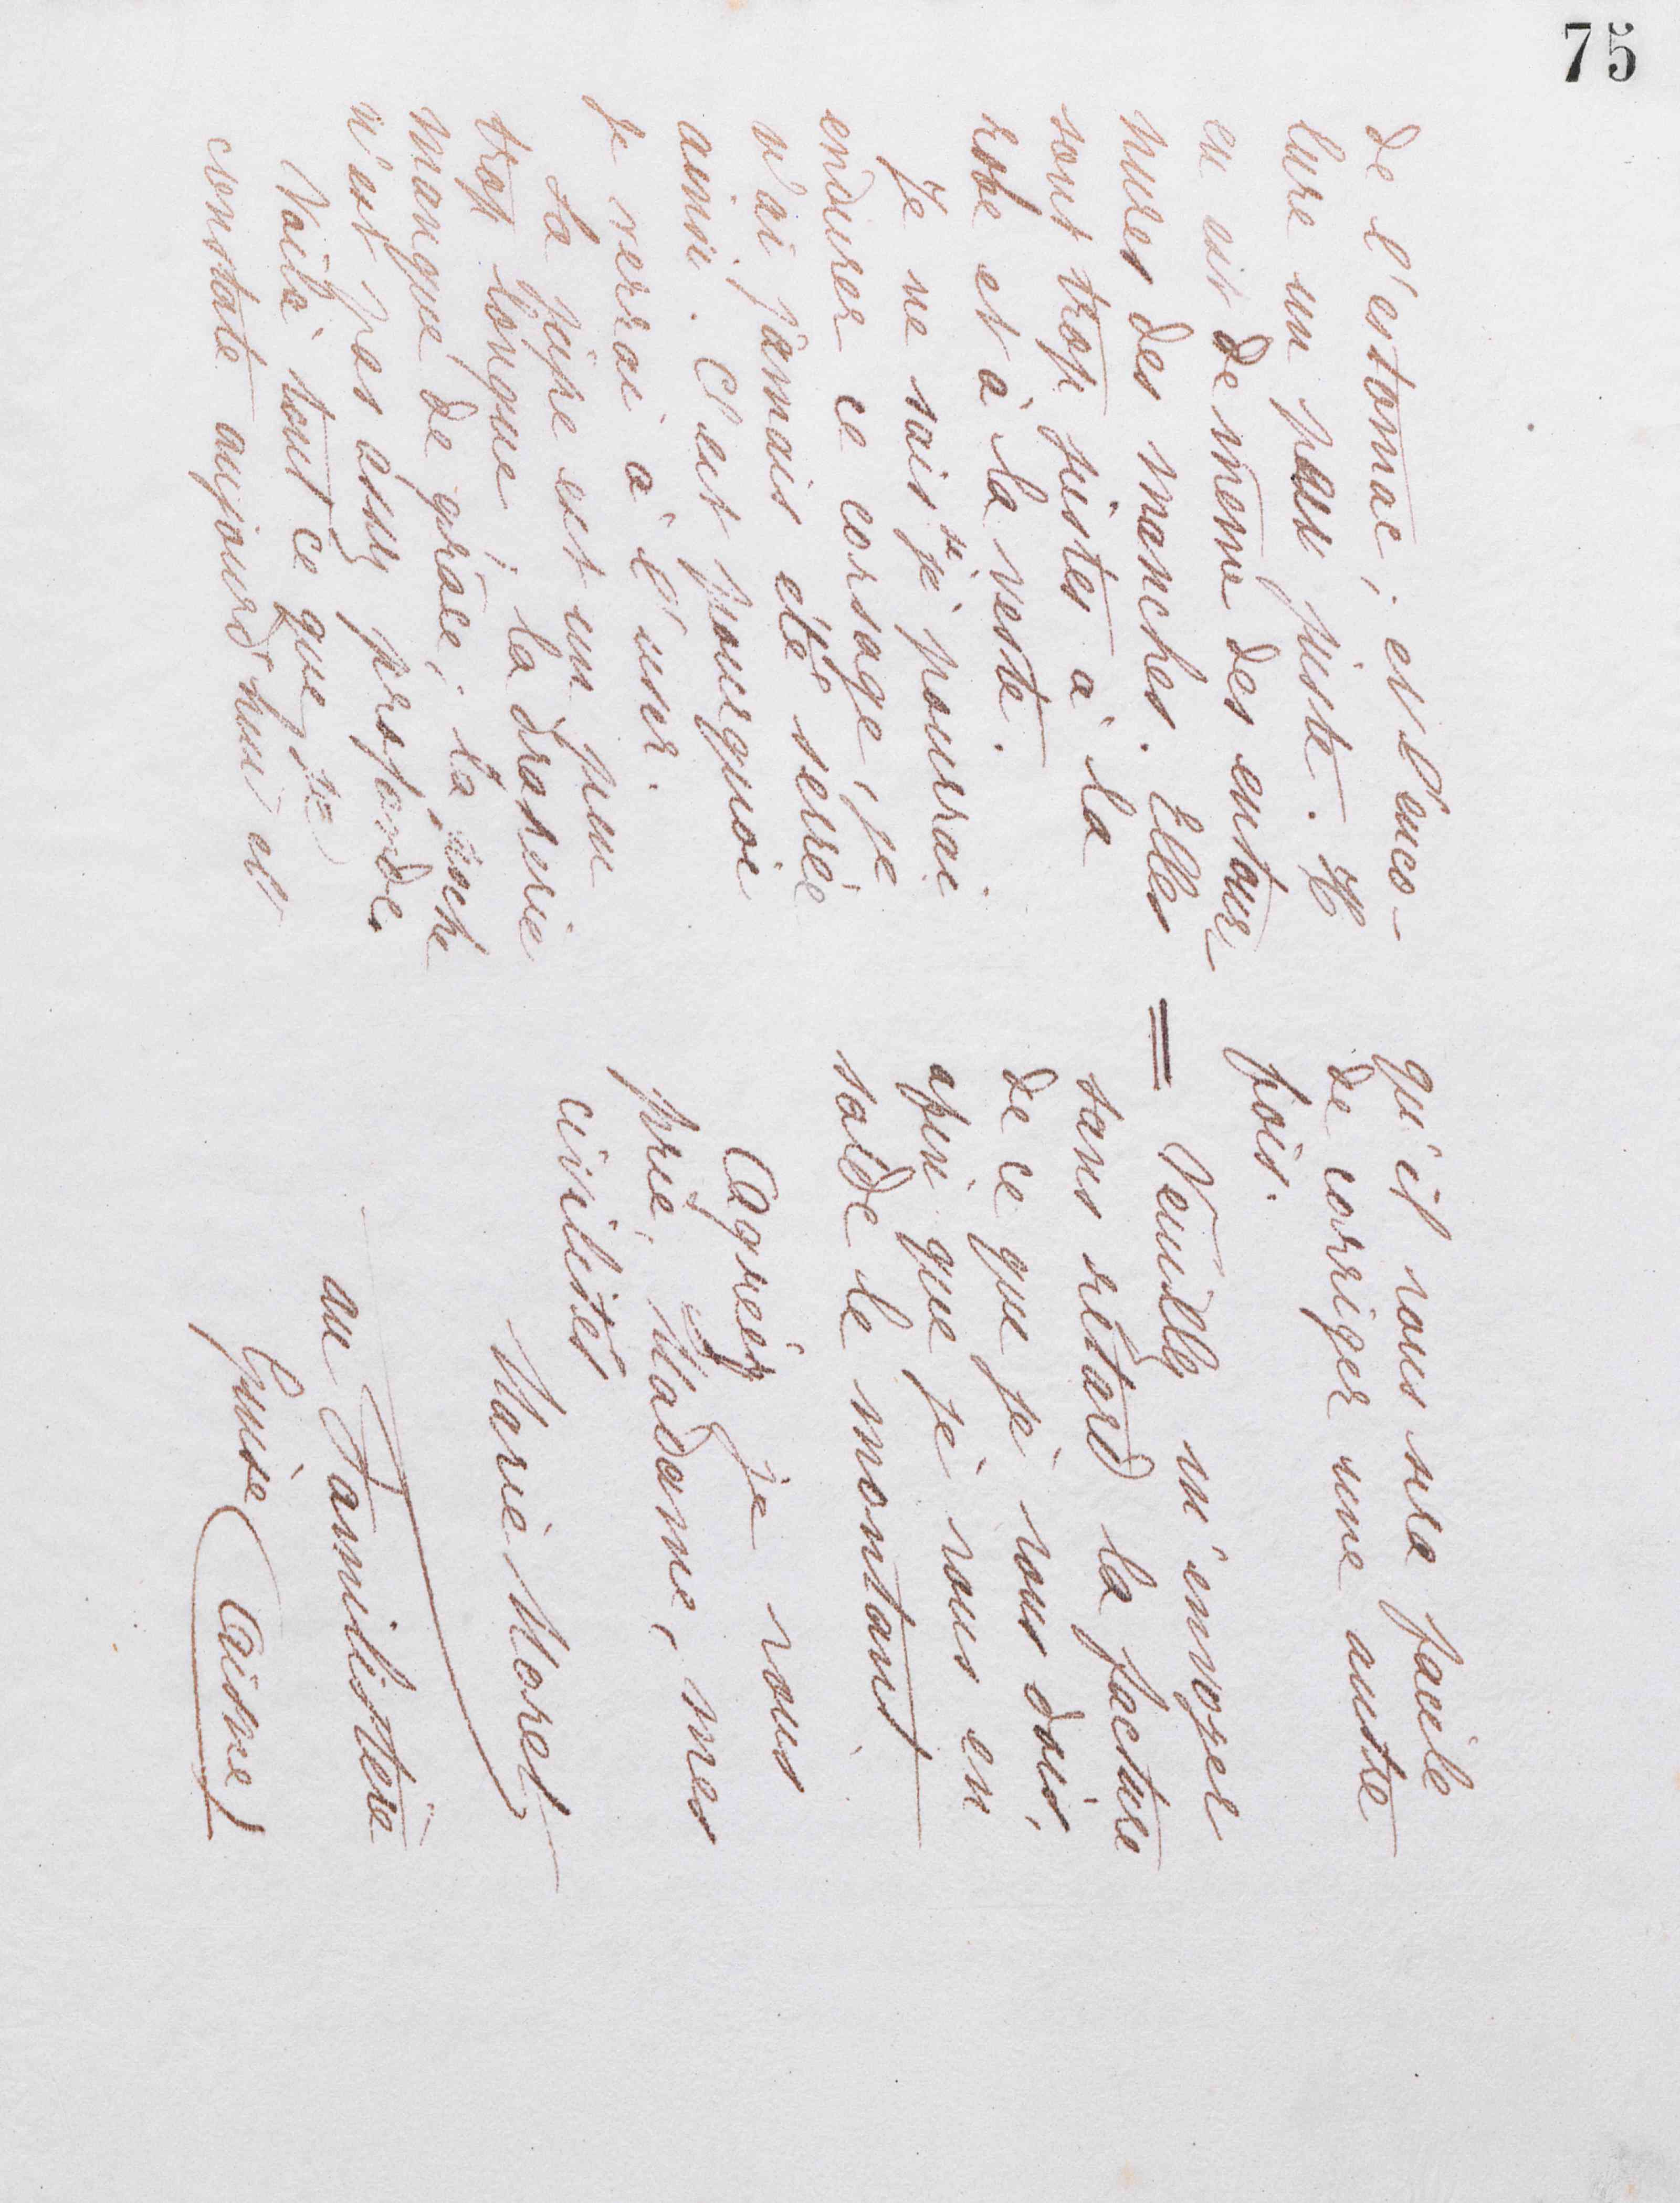 75
de l'estomac; et l'enco-
lure un peu juste. Il
en est de même des entour-
nures des manches. Elles
sont trop justes à la
robe et à la veste.
Je ne sais si je pourrai
endurer ce corsage, je
n'ai jamais été serrée
ainsi. C'est pourquoi
je verrai à l'user.
La jupe est un peu
trop longue; la draperie
manque de grâce; la poche
n'est pas assez profonde.
Voilà tout ce que je
constate aujourd'hui et
qu'il vous sera facile
de corriger une autre
fois.
= Veuillez m'envoyer
sans retard la facture
de ce que je vous dois,
afin que je vous en
solde le montant.
Agréez je vous
prie, Madame, mes
civilités
Marie Moret
au Familistère
Guise (Aisne)